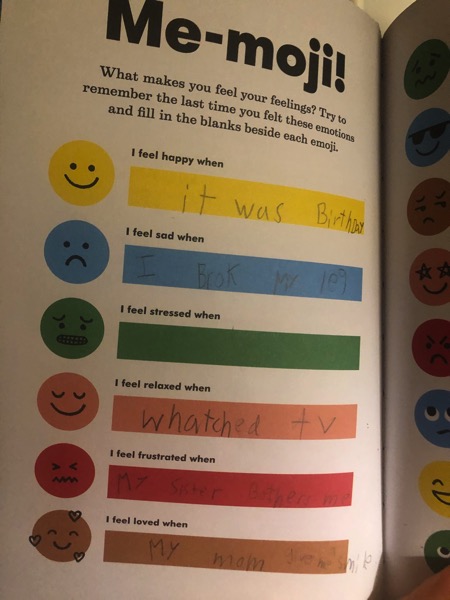 Me-moji!
What makes you feel your feelings? Try to
remember the last time you felt these emotions
and fill in the blanks beside each emoji.
I feel happy when
it was BirthDay
I feel sad when
I Brok My leg
I feel stressed when
I feel relaxed when
whatched tv
I feel frustrated when
My Sister Bothers me
I feel loved when
My mom me